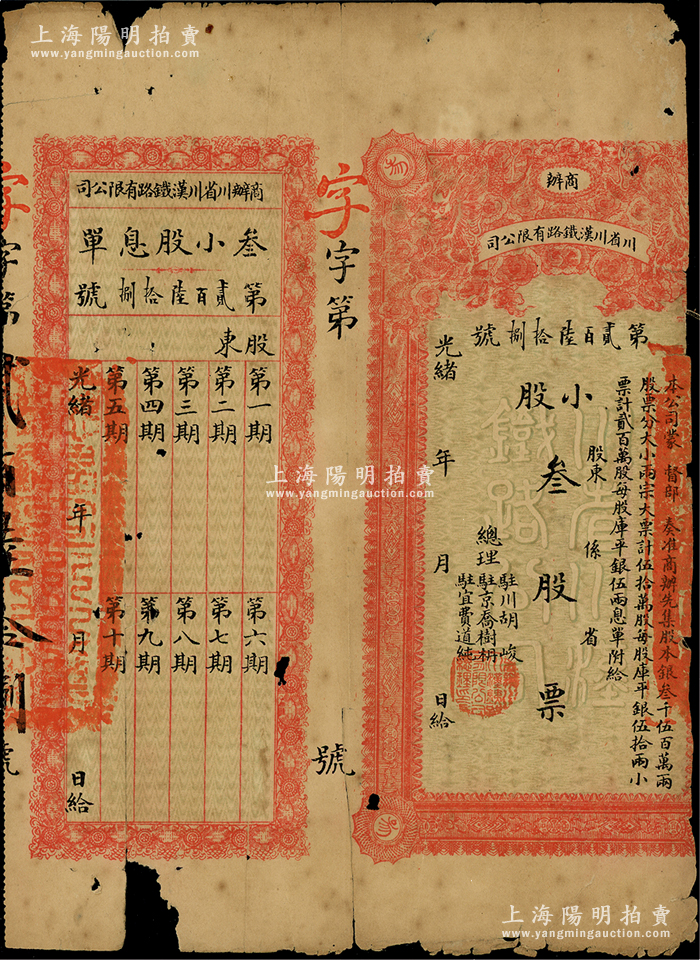 上海陽明拍賣
www.yangmingauction.com
上海陽明拍賣
www.yangmingauction.com
商辦
川省川漢鐵路有限公司
第貳百陸拾捌號
本公司蒙 督部 奏准商辦先集股本銀叁千伍百萬兩
股票分大小兩宗大票計伍拾萬股每股庫平銀伍拾兩小
票計貳百萬股每股庫平銀伍兩息單附給
股東 係 省
小股
叁股票
總理
駐川胡峻
駐京喬樹枬
駐宜費道純
光緒 年 月 日給
字
字第 號
商辦川省川漢鐵路有限公司
叁小股息單
第貳百陸拾捌號
股東
第一期
第二期
第三期
第四期
第五期
第六期
第七期
第八期
第九期
第十期
光緒 年 月 日給
字
字第貳百陸拾捌號
上海陽明拍賣
www.yangmingauction.com
上海陽明拍賣
www.yangmingauction.com